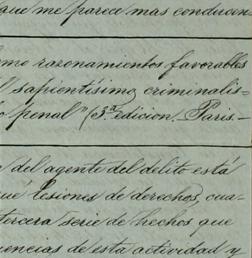 que me parece mas conducen
mo razonamientos favorables
l sapientísimo criminalis=
o penal" (3.ª edicion. Paris.-
del agente del delito está
ué lesiones de derechos, cua-
tercera serie de hechos que
uencias de esta actividad y